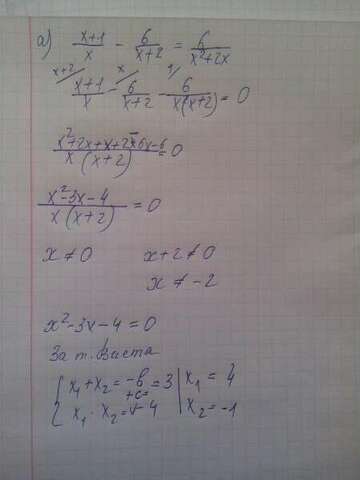 а) x+1/x - 6/x+2 = 6/x²+2x
x+2/ x/ 1/
x+1/x - 6/x+2 - 6/x(x+2) = 0
x²+2x+x+2-6x-6/x(x+2) = 0
x²-3x-4/x(x+2) = 0
x ≠ 0 x+2 ≠ 0
x ≠ -2
x²-3x-4 = 0
За т. Вієта
{ x₁+x₂ = -b = 3 | x₁ = 4
x₁·x₂ = +c = -4 | x₂ = -1